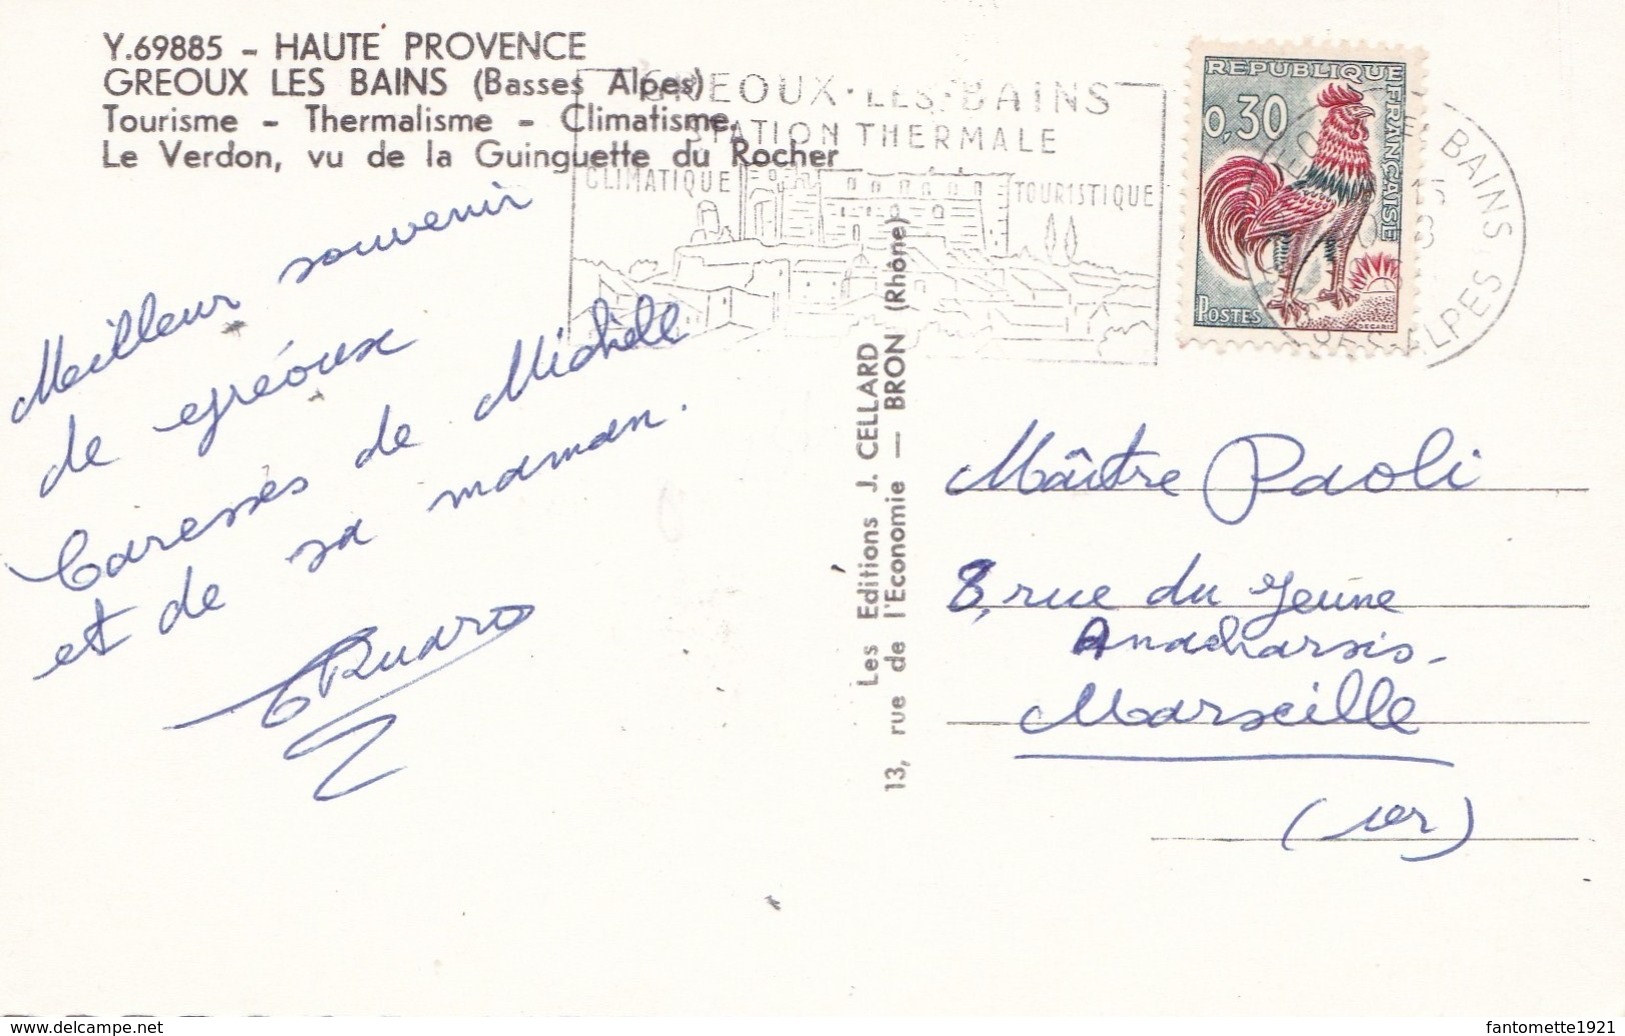 Y.69885 - HAUTE PROVENCE
GREOUX LES BAINS (Basses Alpes)
Tourisme - Thermalisme - Climatisme.
Le Verdon, vu de la Guinguette du Rocher
GREOUX-LES-BAINS
STATION THERMALE
CLIMATIQUE
TOURISTIQUE
REPUBLIQUE FRANÇAISE
0,30
POSTES
DECARIS
BAINS
ALPES
Meilleur souvenir
de gréoux
Caresses de Michèle
et de sa maman.
Les Editions J. CELLARD
13, rue de l'Economie — BRON (Rhône)
Maître Paoli
8, rue du Jeune
Anacharsis-
Marseille
(1er)
fantomette1921
delcampe.net